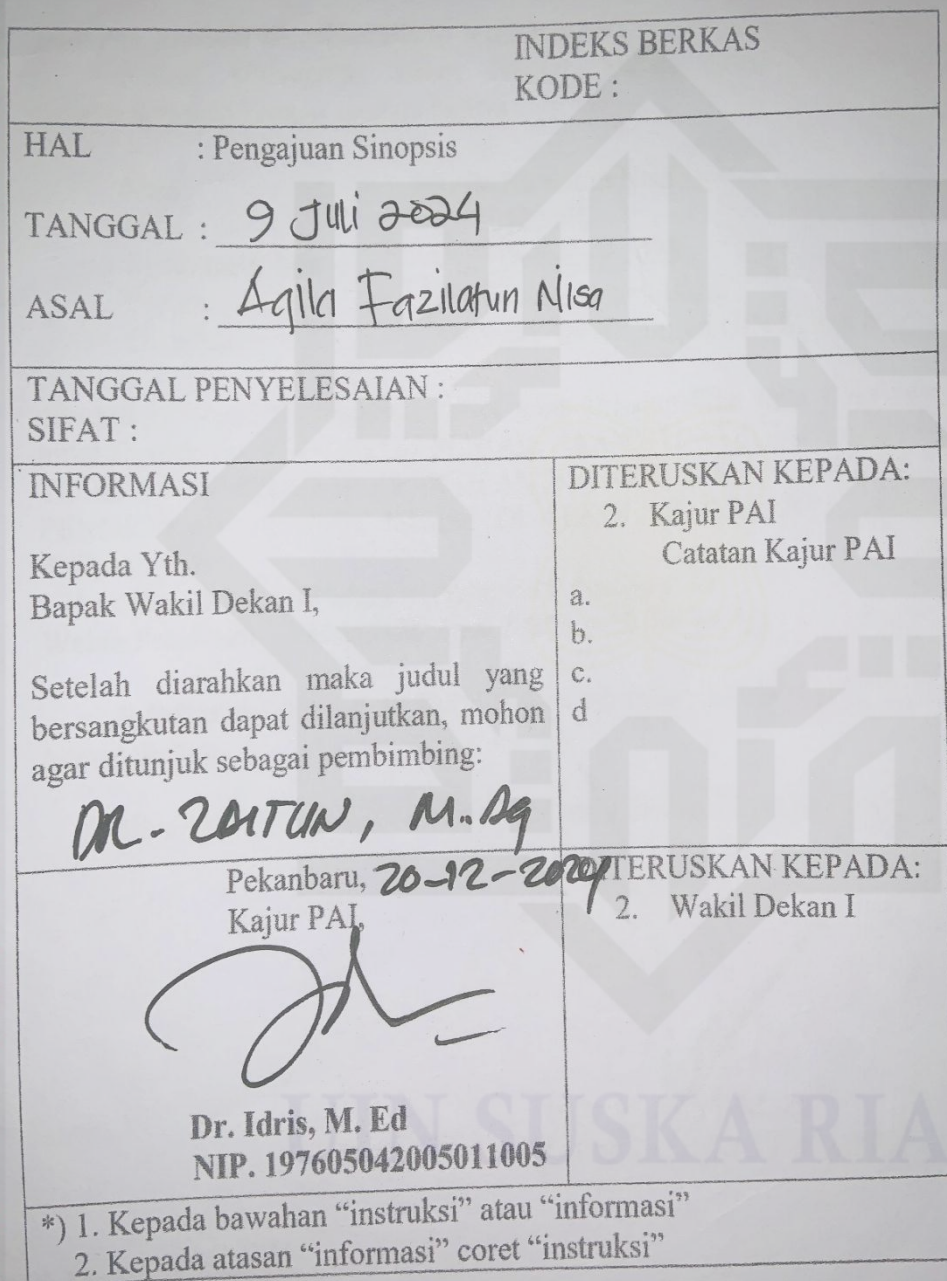 INDEKS BERKAS
KODE :
HAL : Pengajuan Sinopsis
TANGGAL : 9 Juli 2024
ASAL : Aqila Fazilatun Nisa
TANGGAL PENYELESAIAN :
SIFAT :
INFORMASI
Kepada Yth.
Bapak Wakil Dekan I,
Setelah diarahkan maka judul yang
bersangkutan dapat dilanjutkan, mohon
agar ditunjuk sebagai pembimbing:
DR. ZAITUN, M.Ag
DITERUSKAN KEPADA:
2. Kajur PAI
Catatan Kajur PAI
a.
b.
c.
d
Pekanbaru, 20-12-2024
Kajur PAI,
Dr. Idris, M. Ed
NIP. 197605042005011005
DITERUSKAN KEPADA:
2. Wakil Dekan I
UIN SUSKA RIA
*) 1. Kepada bawahan “instruksi” atau “informasi”
2. Kepada atasan “informasi” coret “instruksi”